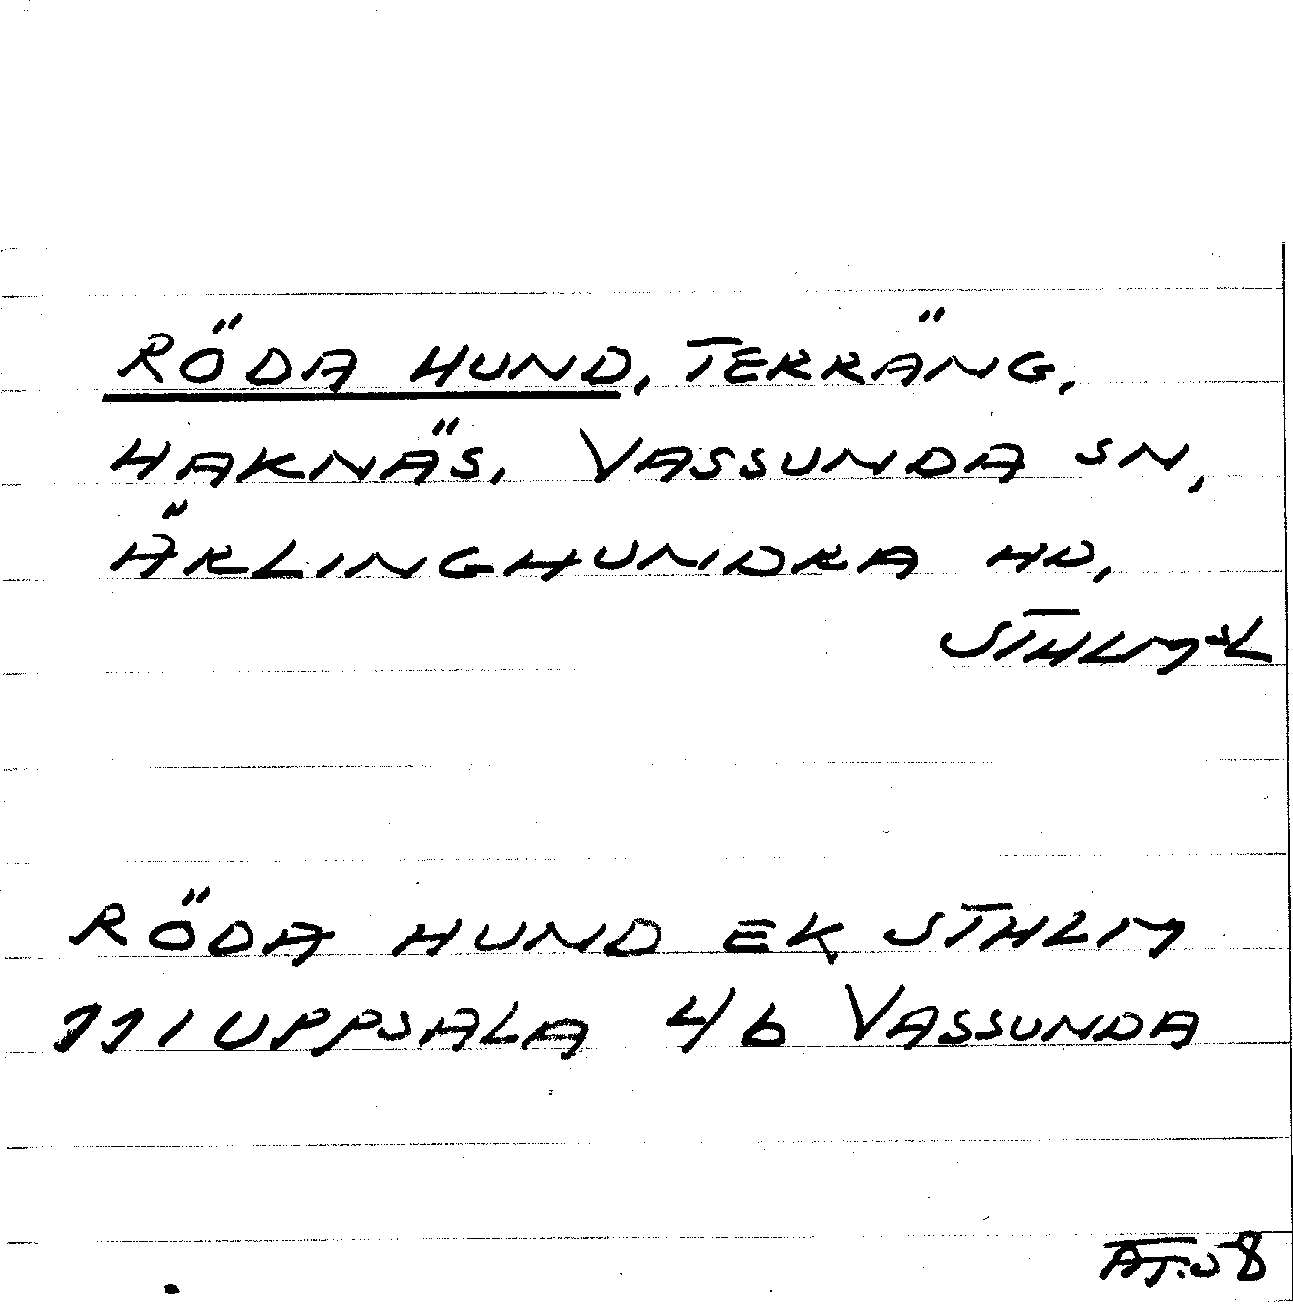 RÖDA HUND, TERRÄNG,
HAKNÄS, VASSUNDA SN,
ÄRLINGHUNDRA HD,
STHLMSL
RÖDA HUND EK STHLM
11I UPPSALA 4b VASSUNDA